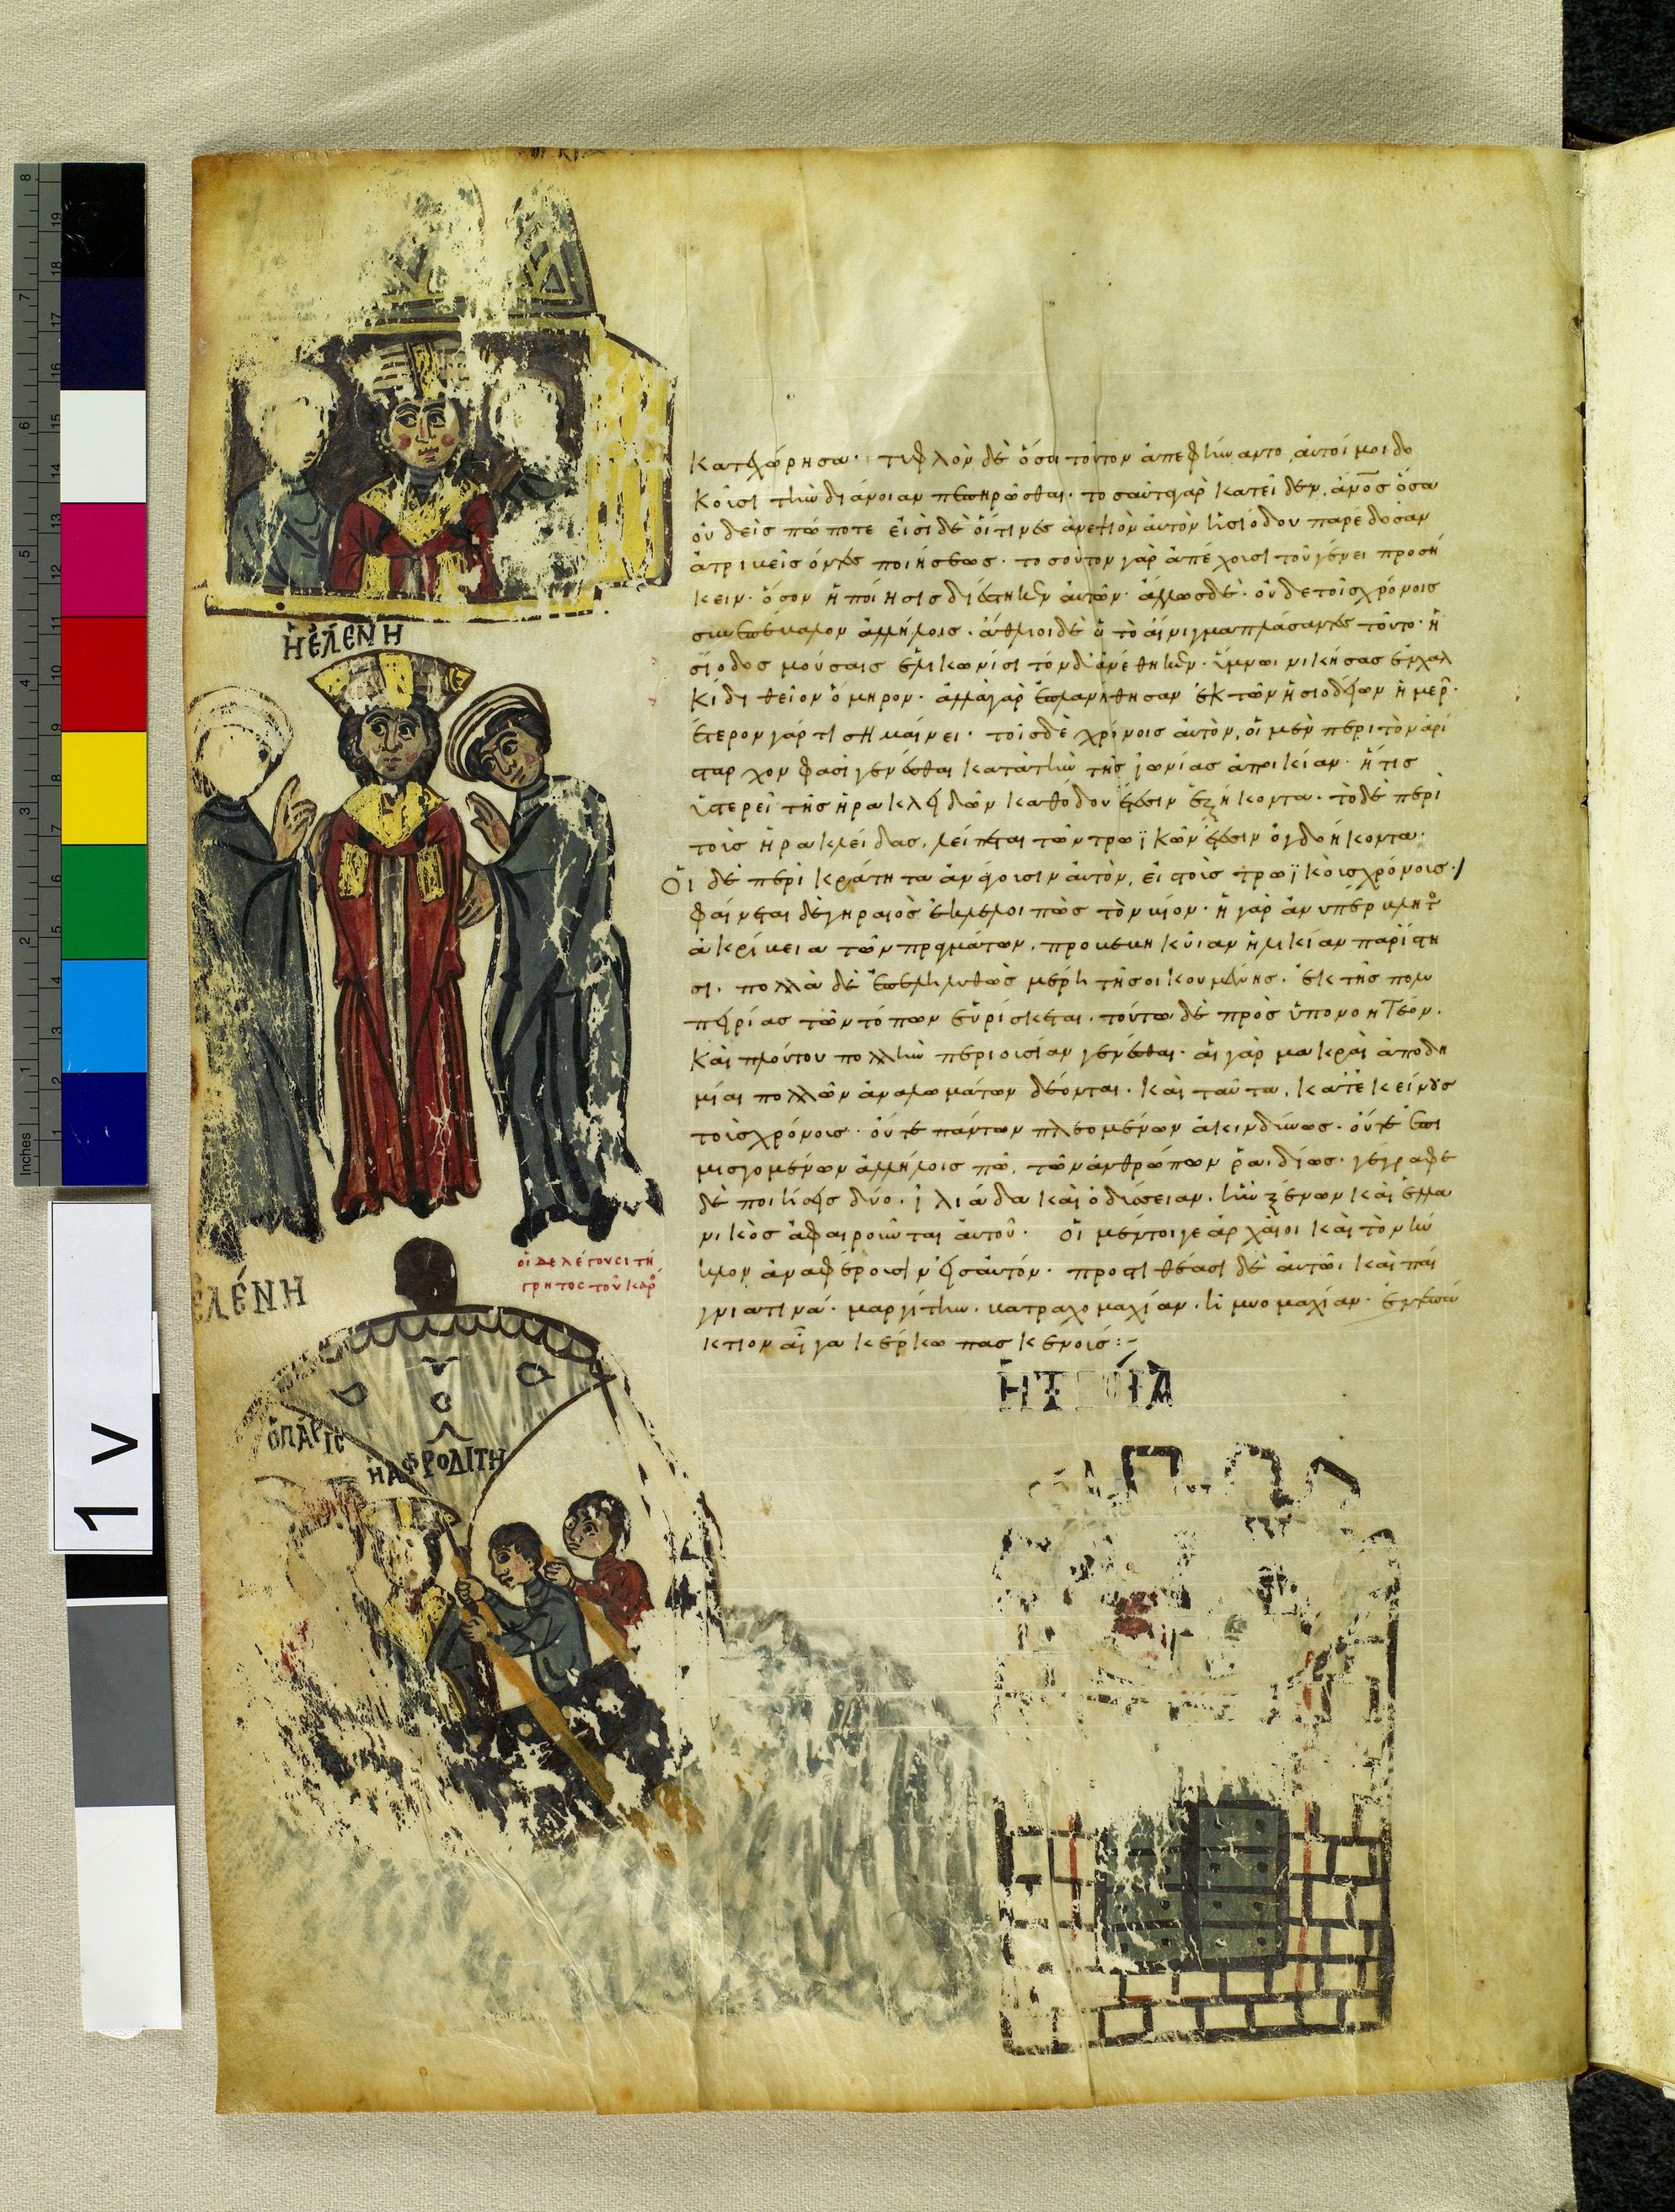 Ἡ ἙΛΕΝΗ
ΕΛΕΝΗ
οἱ δὲ λέγουσι τη
ὁ ΠΑΡΙΣ
ἡ ΑΦΡΟΔΙΤΗ
κατεχώρησα· τυφλὸν δὲ ὅσοι τοῦτον ἀπεφήναντο, αὐτοί μοι δο
κοῦσι τὴν διάνοιαν πεπηρῶσθαι· τοσαῦτα γὰρ κατεῖδεν, ἄνος ὅσα
οὐδεὶς πώποτε εἰσὶ δὲ οἵτινες ἀνεψιὸν αὐτὸν ἡσιόδου παρέδοσαν
ἀτριβεῖς ὄντες ποιήσεως· τοσοῦτον γὰρ ἀπέχουσι τοῦ γένει προσή
κειν· ὅσον ἡ ποίησις διέστηκεν αὐτῶν· ἄλλως δὲ· οὐδὲ τοῖς χρόνοις
συνεπέβαλον ἀλλήλοις· ἄθλιοι δὲ οἱ τὸ αἴνιγμα πλάσαντες τοῦτο· ἡ
σίοδος μούσαις ἑλικωνίσι τόνδ' ἀνέθηκεν· ὕμνωι νικήσας ἐν χαλ
κίδι θεῖον ὅμηρον· ἀλλὰ γὰρ ἐπλανήθησαν ἐκ τῶν ἡσιοδείων ἡμερ
ἕτερον γάρ τι σημαίνει· τοῖς δὲ χρόνοις αὐτὸν, οἱ μὲν περὶ τὸν ἀρί
σταρχον φασὶ γενέσθαι κατὰ τὴν τῆς ἰωνίας ἀποικίαν· ἥτις
ὑστερεῖ τῆς ἡρακλειδῶν καθόδου ἔτεσιν ἑξήκοντα· τὸ δὲ περὶ
τοὺς ἡρακλείδας, λείπεται τῶν τρωϊκῶν ἔτεσιν ὀγδοήκοντα·
Οἱ δὲ περὶ κράτητα ἀνάγουσιν αὐτὸν, εἰς τοὺς τρωϊκοὺς χρόνους·
φαίνεται δὲ γηραιὸς ἐκλελοιπὼς τὸν βίον· ἡ γὰρ ἀνυπέρβλητ
ἀκρίβεια τῶν πραγμάτων, προβεβηκυῖαν ἡλικίαν παρίστη
σι· πολλὰ δὲ ἐπεληλυθὼς μέρη τῆς οἰκουμένης· ἐκ τῆς πολυ
πειρίας τῶν τόπων εὑρίσκεται· τούτω δὲ προσυπονοητέον·
καὶ πλούτου πολλὴν περιουσίαν γενέσθαι· αἱ γὰρ μακραὶ ἀποδη
μίαι πολλῶν ἀναλωμάτων δέονται· καὶ ταῦτα, κατ' ἐκείνους
τοὺς χρόνους· οὔτε πάντων πλεομένων ἀκινδύνως· οὔτε ἐπι
μισγομένων ἀλλήλοις πω, τῶν ἀνθρώπων ῥαιδίως· γέγραφε
δὲ ποιήσεις δύο· ἰλιάδα καὶ ὀδύσσειαν, ἣν ξένων καὶ ἑλλά
νικὸς ἀφαιροῦνται αὐτοῦ· οἱ μέντοιγε ἀρχαῖοι καὶ τὸν κύ
κλον ἀναφέρουσιν εἰς αὐτόν· προστιθέασι δὲ αὐτῶι καὶ παί
γνια τινά· μαργίτην· βατραχομαχίαν· ἢ μυομαχίαν·
κτιον αἶγα κερκωπας κενούς:-